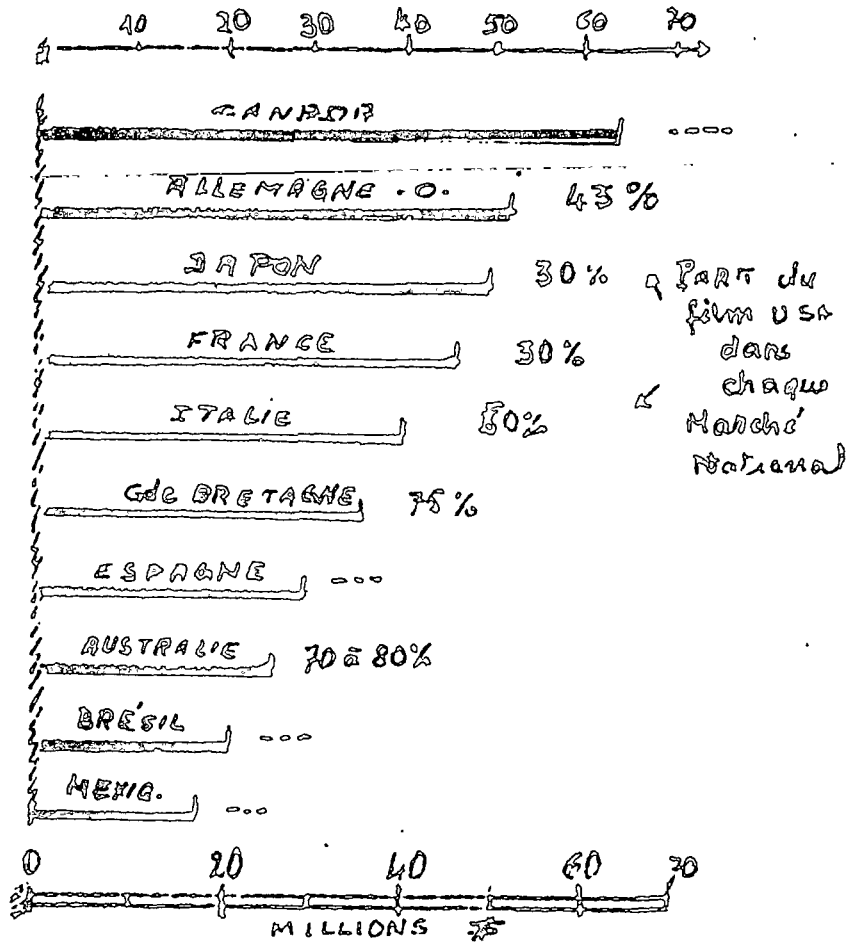 10 20 30 40 50 60 70
CANADA
ALLEMAGNE . O. 43 %
JAPON 30 %
FRANCE 30 %
ITALIE 50 %
Gde BRETAGNE 75 %
ESPAGNE
AUSTRALIE 70 à 80 %
BRÉSIL
MEXIQ.
Part du
film USA
dans
chaque
Marché
National
0 20 40 60 70
MILLIONS